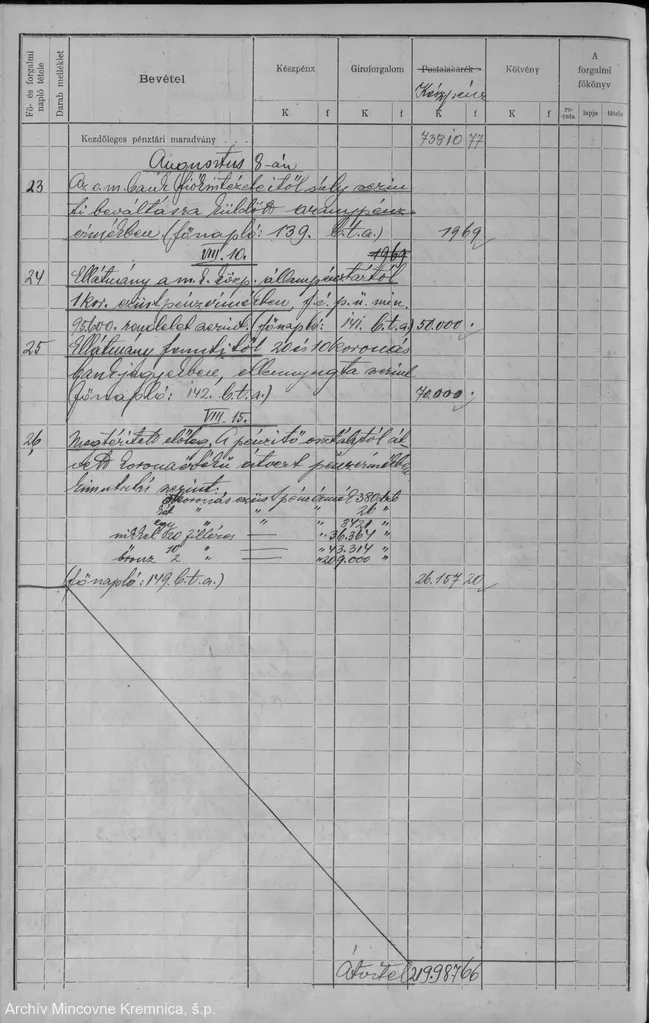 Fő- és forgalmi napló tétele
Darab melléklet
Bevétel
Készpénz
Giroforgalom
Postatakarék
Készpénz
Kötvény
A forgalmi főkönyv
K f K f K f K f
rovata lapja tétele
Kezdőleges pénztári maradvány 73810 77
Augusztus 8-án
23 Az o. m. bank fiókintézeteitől súly szerin
ti beváltásra küldött aranypénz
érmékben (főnapló: 139. b.t.a.) 1969
VIII. 10. 1969
24 Ellátmány a m. k. közp. állampénztártól
1 kor. ezüst pénzérmékben, f. é. p. ü. min.
95.600. rendelet szerint. (főnapló: 141. b.t.a.) 50.000 .
25 Ellátmány fenntitől 20 és 10 koronás
bankjegyekben, ellennyugta szerint
(főnapló: 142. b.t.a.) 70.000 .
VIII. 15.
26 Megtérített előleg. A pénzítő osztálytól át-
vett koronaértékű átvert pénzérmékben
kimutatás szerint:
koronás ezüst pénzérmék 380 db
" " " 26 "
egy " " " 3421 "
nikkel 20 filléres — " 36.364 "
10 " — " 43.314 "
bronz 2 " — " 209.000 "
(főnapló: 149. b.t.a.) 26.157 20
Átvitel 219.987 66
Archív Mincovne Kremnica, š.p.